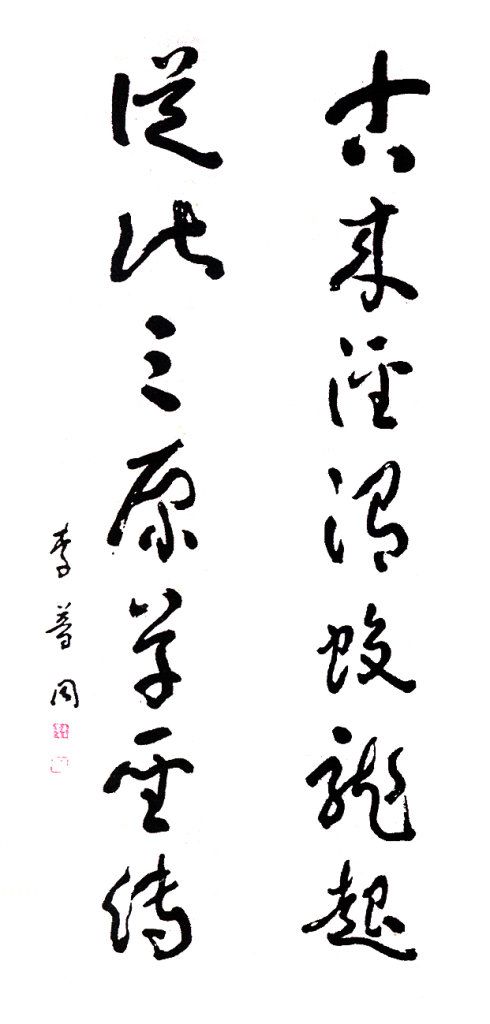 古來涇渭蛟龍起
從此三原草聖傳
李普同